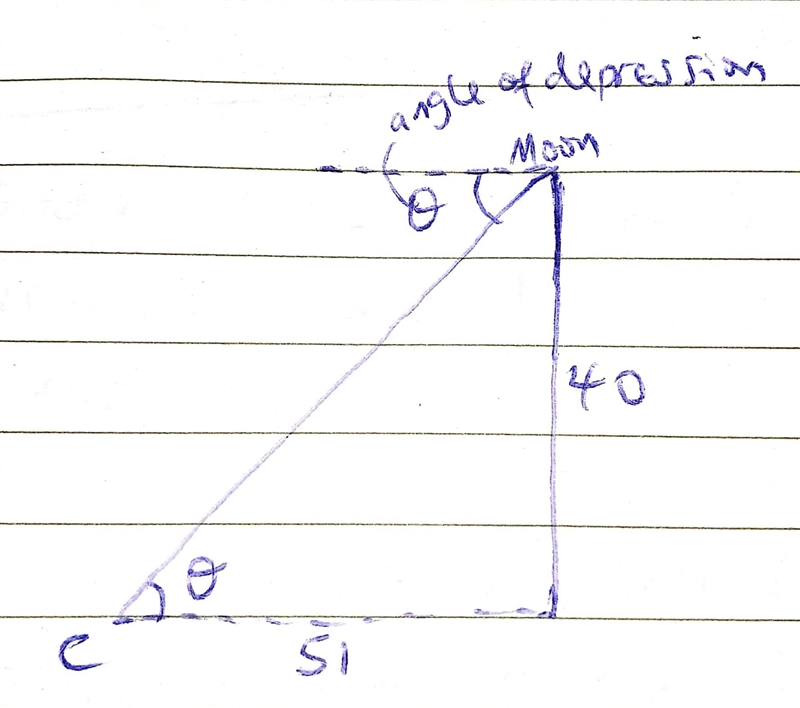 angle of depression
Moon
θ
40
θ
C 51